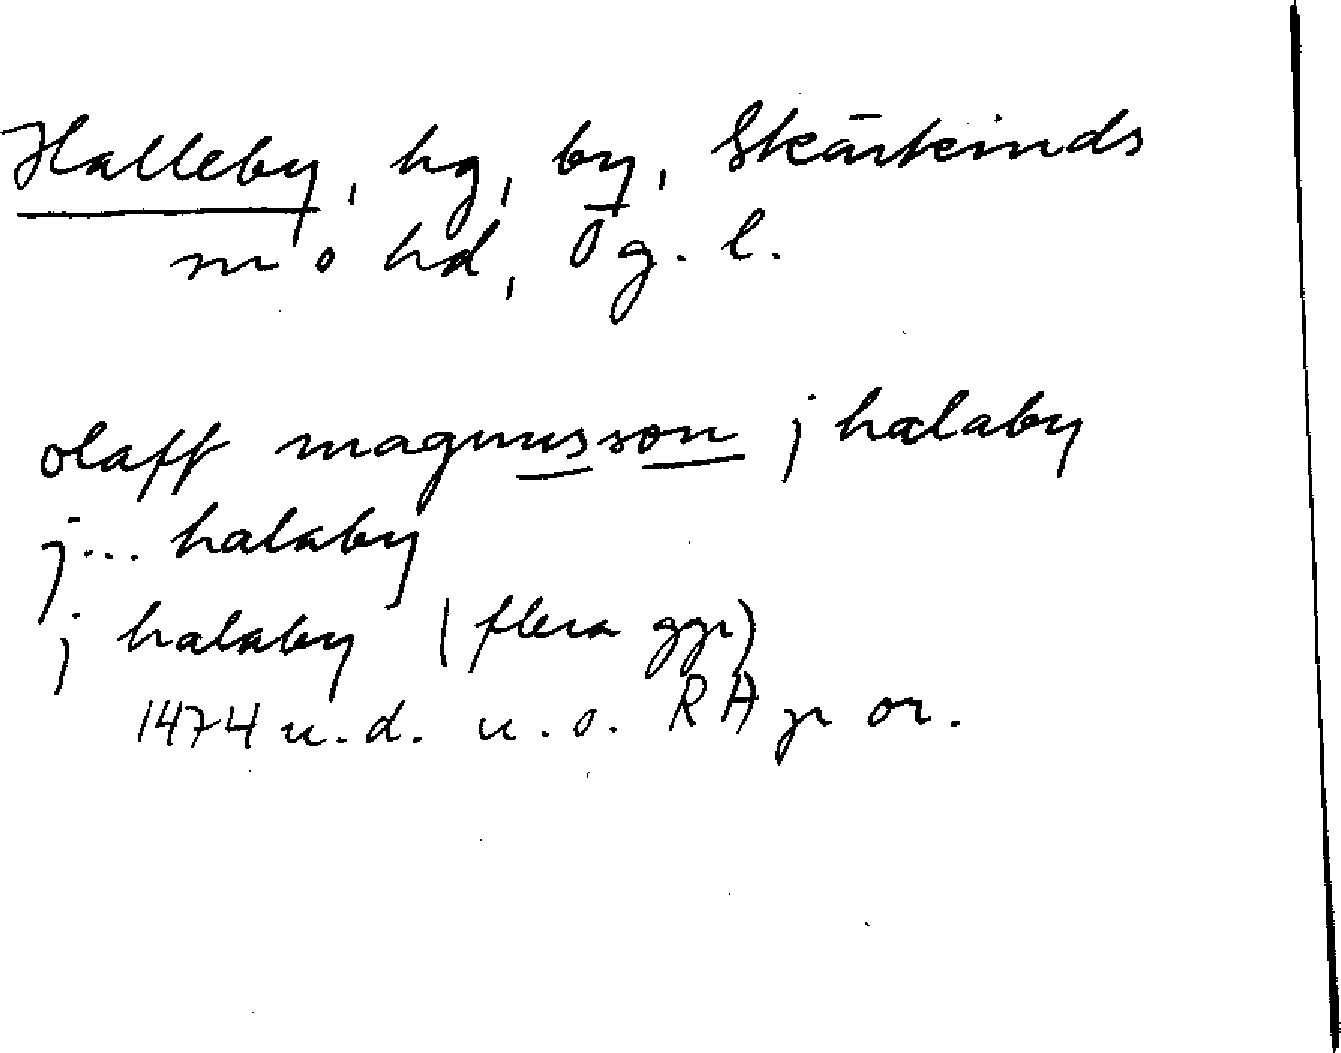 Halleby, hg, by, Skärkinds
sn o hd, Ög. l.
olaff magnusson j halaby
j... halaby
j halaby (flera ggr)
1474 u.d. u.o. RA pr or.